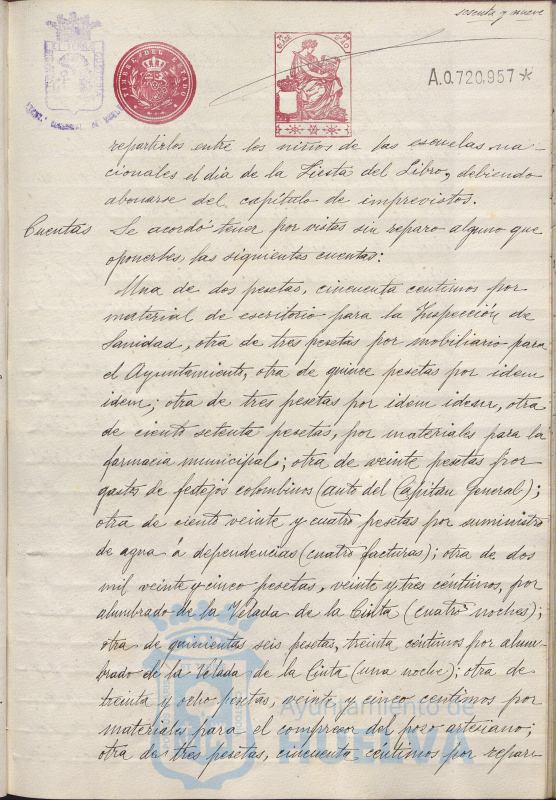 sesenta y nueve
TIMBRE DEL ESTADO
A.0.720.957*
repartirlos entre los niños de las escuelas na-
cionales el día de la Fiesta del Libro, debiendo
abonarse del capítulo de imprevistos.
Cuentas Se acordó tener por vistas sin reparo alguno que
oponerles, las siguientes cuentas:
Una de dos pesetas, cincuenta centimos por
material de escritorio para la Inspección de
Sanidad, otra de tres pesetas por mobiliario para
el Ayuntamiento, otra de quince pesetas por idem
idem; otra de tres pesetas por idem idem, otra
de ciento setenta pesetas, por materiales para la
farmacia municipal; otra de veinte pesetas por
gastos de festejos colombinos (auto del Capitan General);
otra de ciento veinte y cuatro pesetas por suministro
de agua á dependencias (cuatro facturas); otra de dos
mil veinte y cinco pesetas, veinte y tres céntimos, por
alumbrado de la Velada de la Cinta (cuatro noches);
otra de quinientas seis pesetas, treinta céntimos por alum-
brado de la Velada de la Cinta (una noche); otra de
treinta y ocho pesetas, veinte y cinco centimos por
Ayuntamiento de
materiales para el compresor del pozo artesiano;
HUELVA
otra de tres pesetas, cincuenta céntimos por repara-